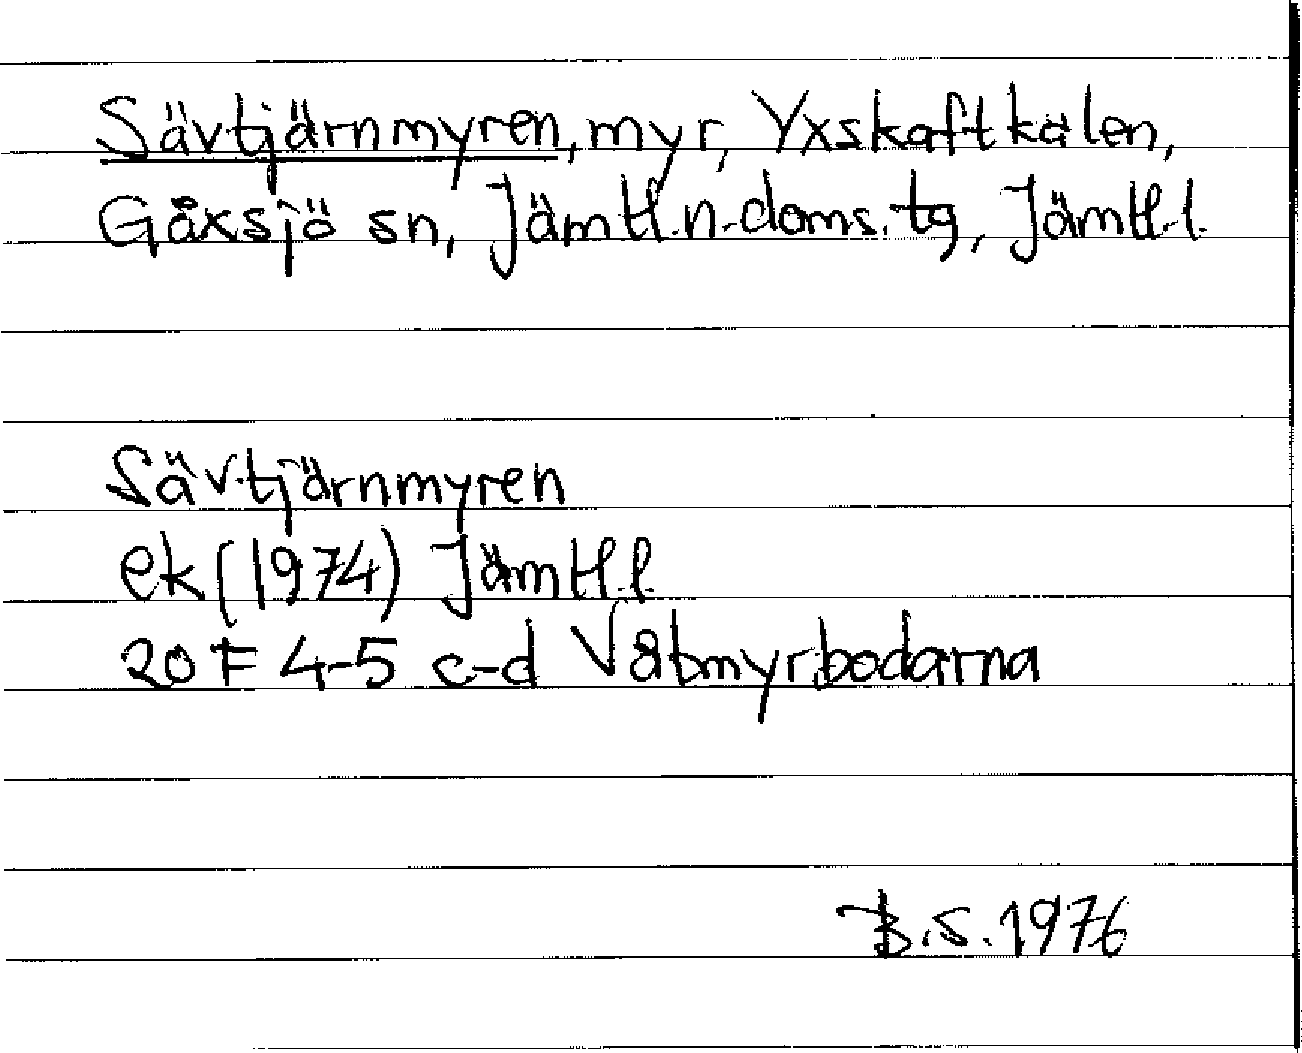 Sävtjärnmyren, myr, Yxskaftkälen,
Gåxsjö sn, Jämtl.n.doms.tg, Jämtl.l.
Sävtjärnmyren
ek (1974) Jämtl.l.
20 F 4-5 c-d Våtmyrbodarna
B.S. 1976